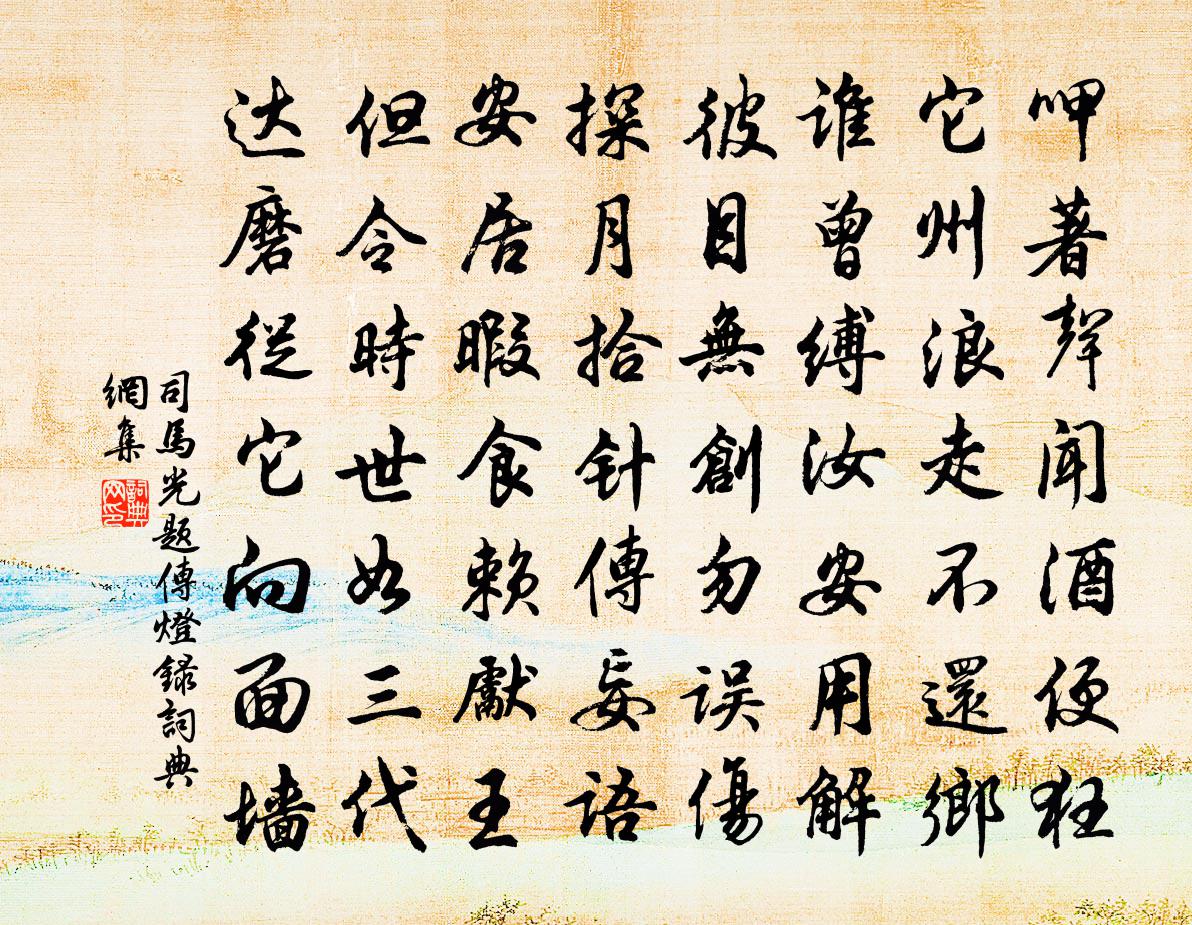 呷著聲聞酒便狂
它州浪走不還鄉
谁曾縛汝安用解
彼目無創勿误傷
探月拾针傳妄语
安居暇食赖獻王
但令時世如三代
达磨從它向面墙
司馬光题傳燈録詞典
網集
詞典网印